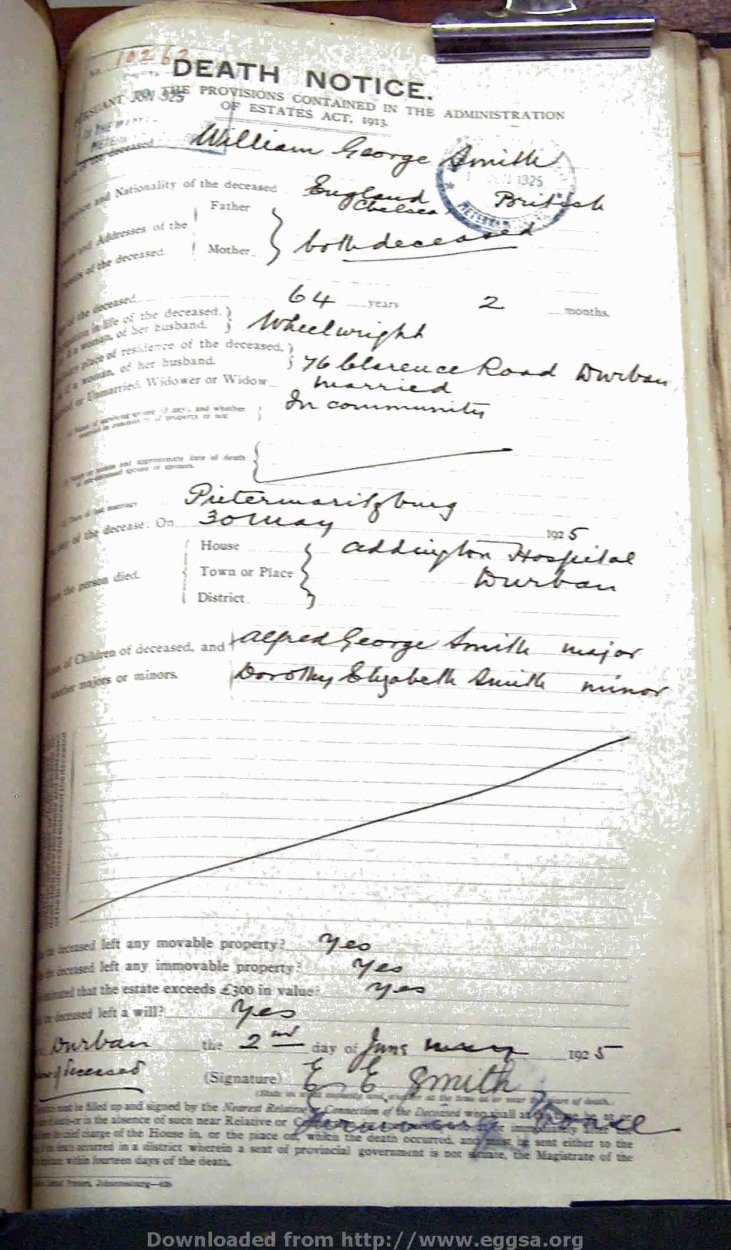 No. 10262
DEATH NOTICE.
PURSUANT TO THE PROVISIONS CONTAINED IN THE ADMINISTRATION
OF ESTATES ACT, 1913.
JUN 925
of the deceased William George Smith
1925
and Nationality of the deceased England British
Chelsea
and Addresses of the Father
of the deceased Mother both deceased
of the deceased 64 years 2 months.
in life of the deceased,
if a woman, of her husband. Wheelwright
place of residence of the deceased,
if a woman, of her husband. 76 Clarence Road Durban
or Unmarried, Widower or Widow married
In community
Pietermaritzburg
of the decease: On 30 May 1925
House Addington Hospital
the person died. Town or Place Durban
District
of Children of deceased, and Alfred George Smith major
whether majors or minors. Dorothy Elizabeth Smith minor
deceased left any movable property? Yes
deceased left any immovable property? Yes
estimated that the estate exceeds £300 in value? Yes
deceased left a will? Yes
Durban the 2nd day of June May 1925
of deceased
(Signature) E E Smith
must be filled up and signed by the Nearest Relative or Connection of the Deceased who shall at
or in the absence of such near Relative or
charge of the House in, or the place on, which the death occurred, and must be sent either to the
occurred in a district wherein a seat of provincial government is not situate, the Magistrate of the
within fourteen days of the death.
Downloaded from http://www.eggsa.org